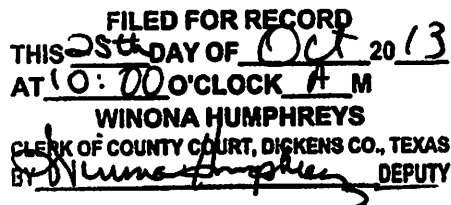 FILED FOR RECORD
THIS 25th DAY OF Oct 20 13
AT 10:00 O'CLOCK A M
WINONA HUMPHREYS
CLERK OF COUNTY COURT, DICKENS CO., TEXAS
BY Winona Humphreys DEPUTY